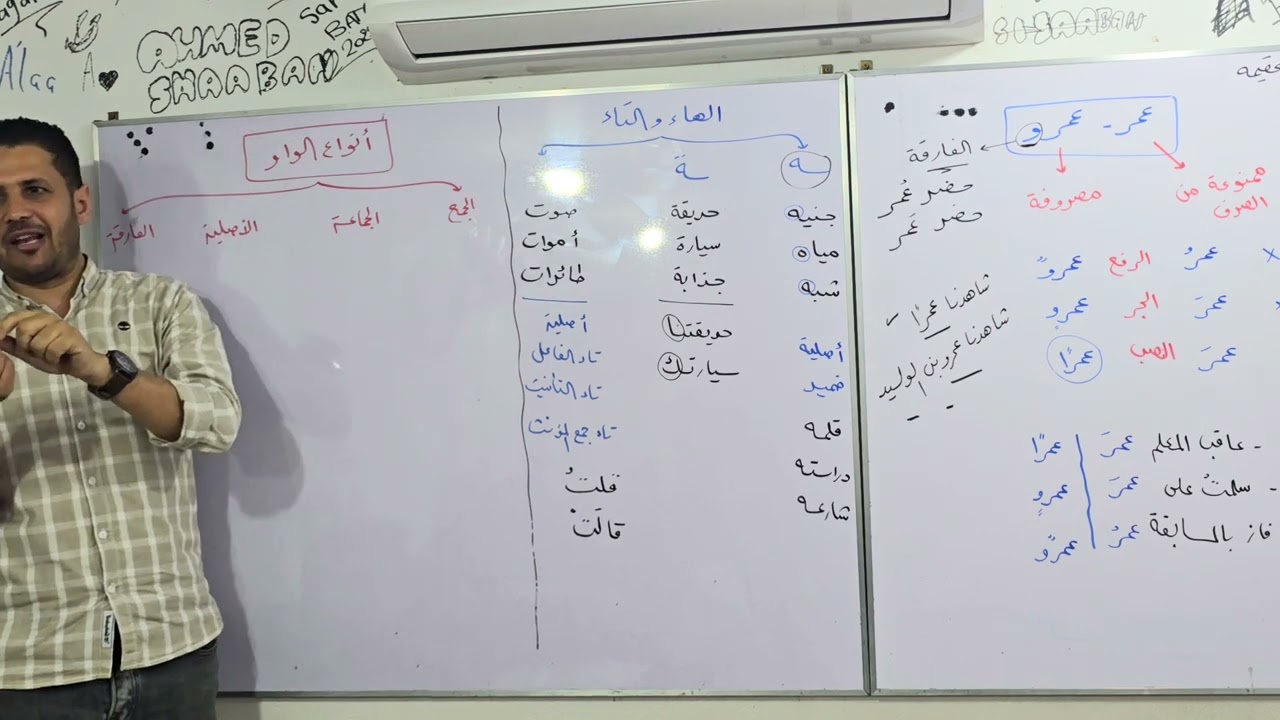 A'laa A
AHMED
SHAABAN
عمر - عمرو
الفارقة
ممنوعة من
الصرف
مصروفة
حضر عُمر
حضر عَمر
عمرُ الرفع عمروٌ
عمرَ الجر عمروٍ
عمرَ النصب عمرًا
شاهدنا عمرًا ✓
شاهدنا عمرو بن الوليد
- عاقب المعلم عمرَ | عمرًا
- سلمتُ على عمرَ | عمروٍ
فاز بالمسابقة عمرُ | عمروٌ
الهاء و التاء
ـه
ـة
جنيه
مياه
شبه
أصلية
ضمير
قلمه
دراسته
شارعه
حديقة
سيارة
جذابة
حديقتنا
سيارتك
صوت
أموات
طائرات
أصلية
تاء الفاعل
تاء التأنيث
تاء جمع المؤنث
قلتُ
قالَتْ
أنواع الواو
الجمع
الجماعة
الأصلية
الفارقة